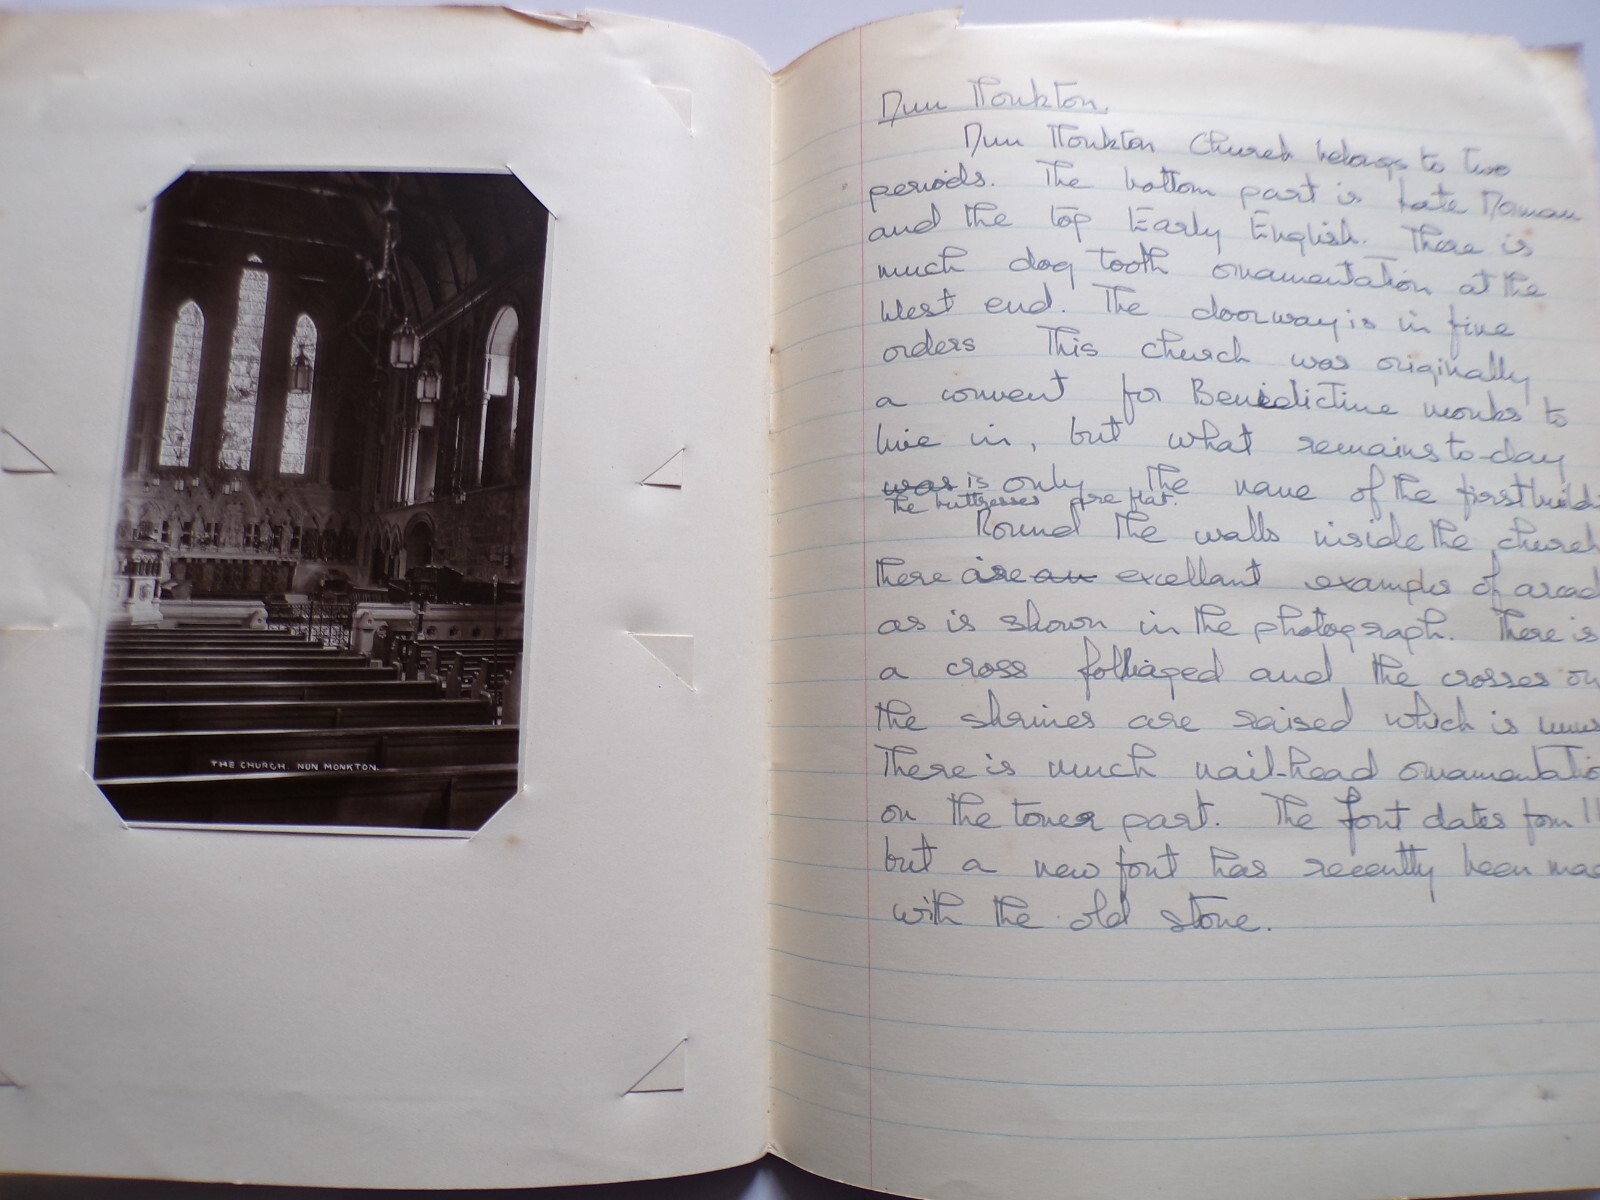 THE CHURCH. NUN MONKTON.
Nun Monkton.
Nun Monkton Church belongs to two
periods. The bottom part is Late Norman
and the top Early English. There is
much dog tooth ornamentation at the
West end. The doorway is in five
orders This church was originally
a convent for Benedictine monks to
live in, but what remains to-day
was is only the nave of the first build
The buttresses are flat.
Round the walls inside the church
there are an excellant examples of arcad
as is shown in the photograph. There is
a cross folliaged and the crosses on
the shrines are raised which is unus
There is much nail-head ornamentatio
on the tower part. The font dates fom 11
but a new font has recently been mad
with the old stone.